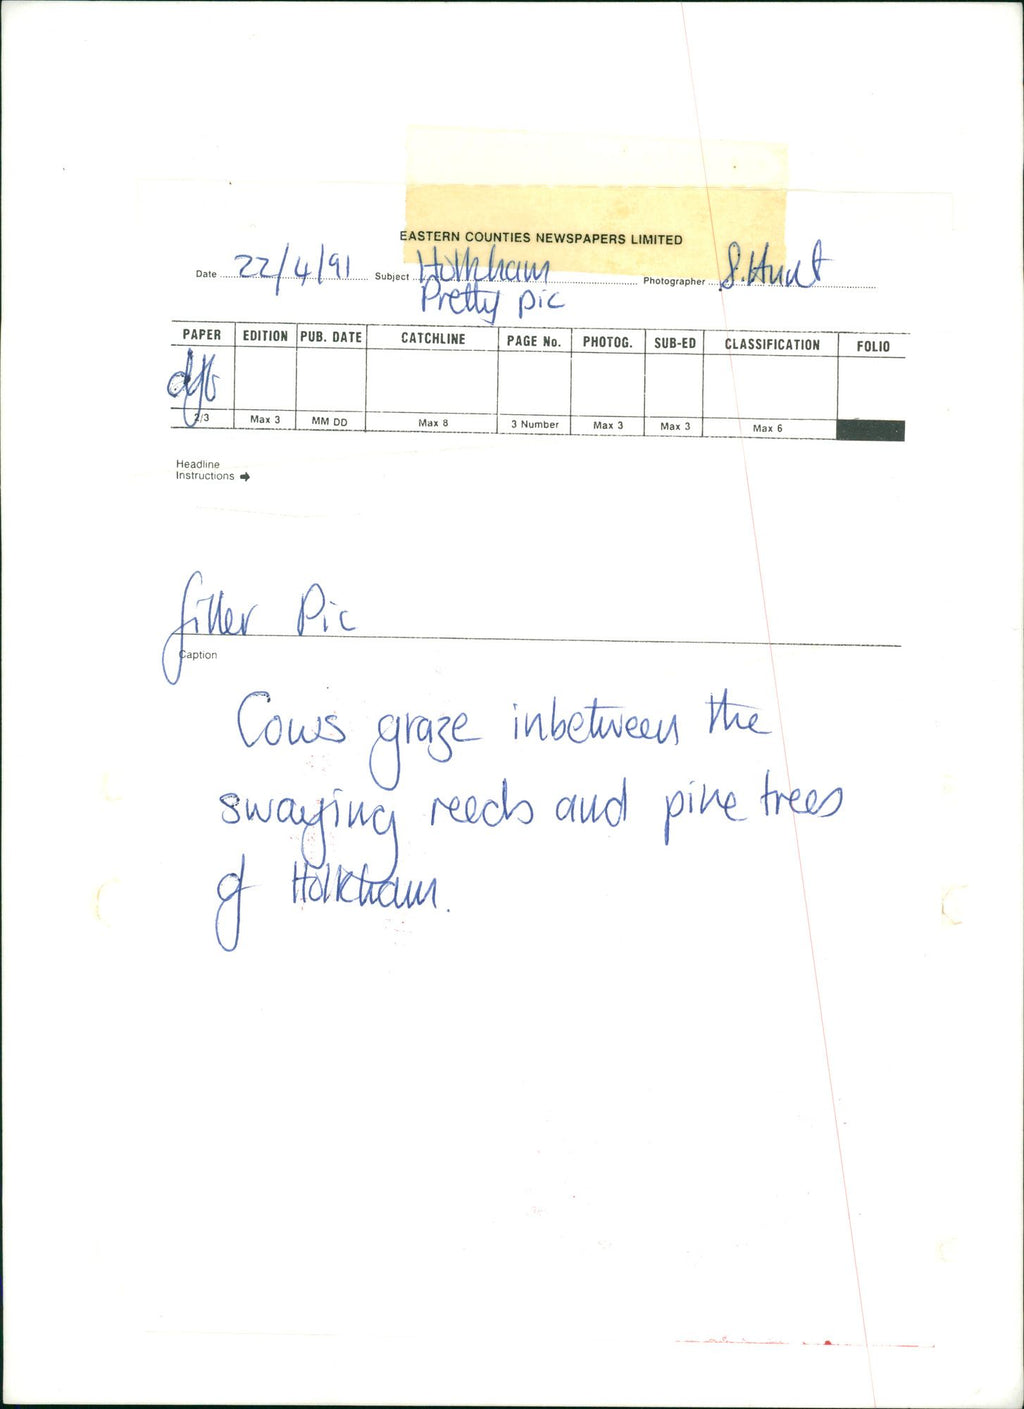 EASTERN COUNTIES NEWSPAPERS LIMITED
Date 22/4/91 Subject Holkham Photographer S. Hunt
Pretty pic
PAPER EDITION PUB. DATE CATCHLINE PAGE No. PHOTOG. SUB-ED CLASSIFICATION FOLIO
2/3 Max 3 MM DD Max 8 3 Number Max 3 Max 3 Max 6
Headline
Instructions
filler Pic
Caption
Cows graze inbetween the
swaying reeds and pine trees
of Holkham.